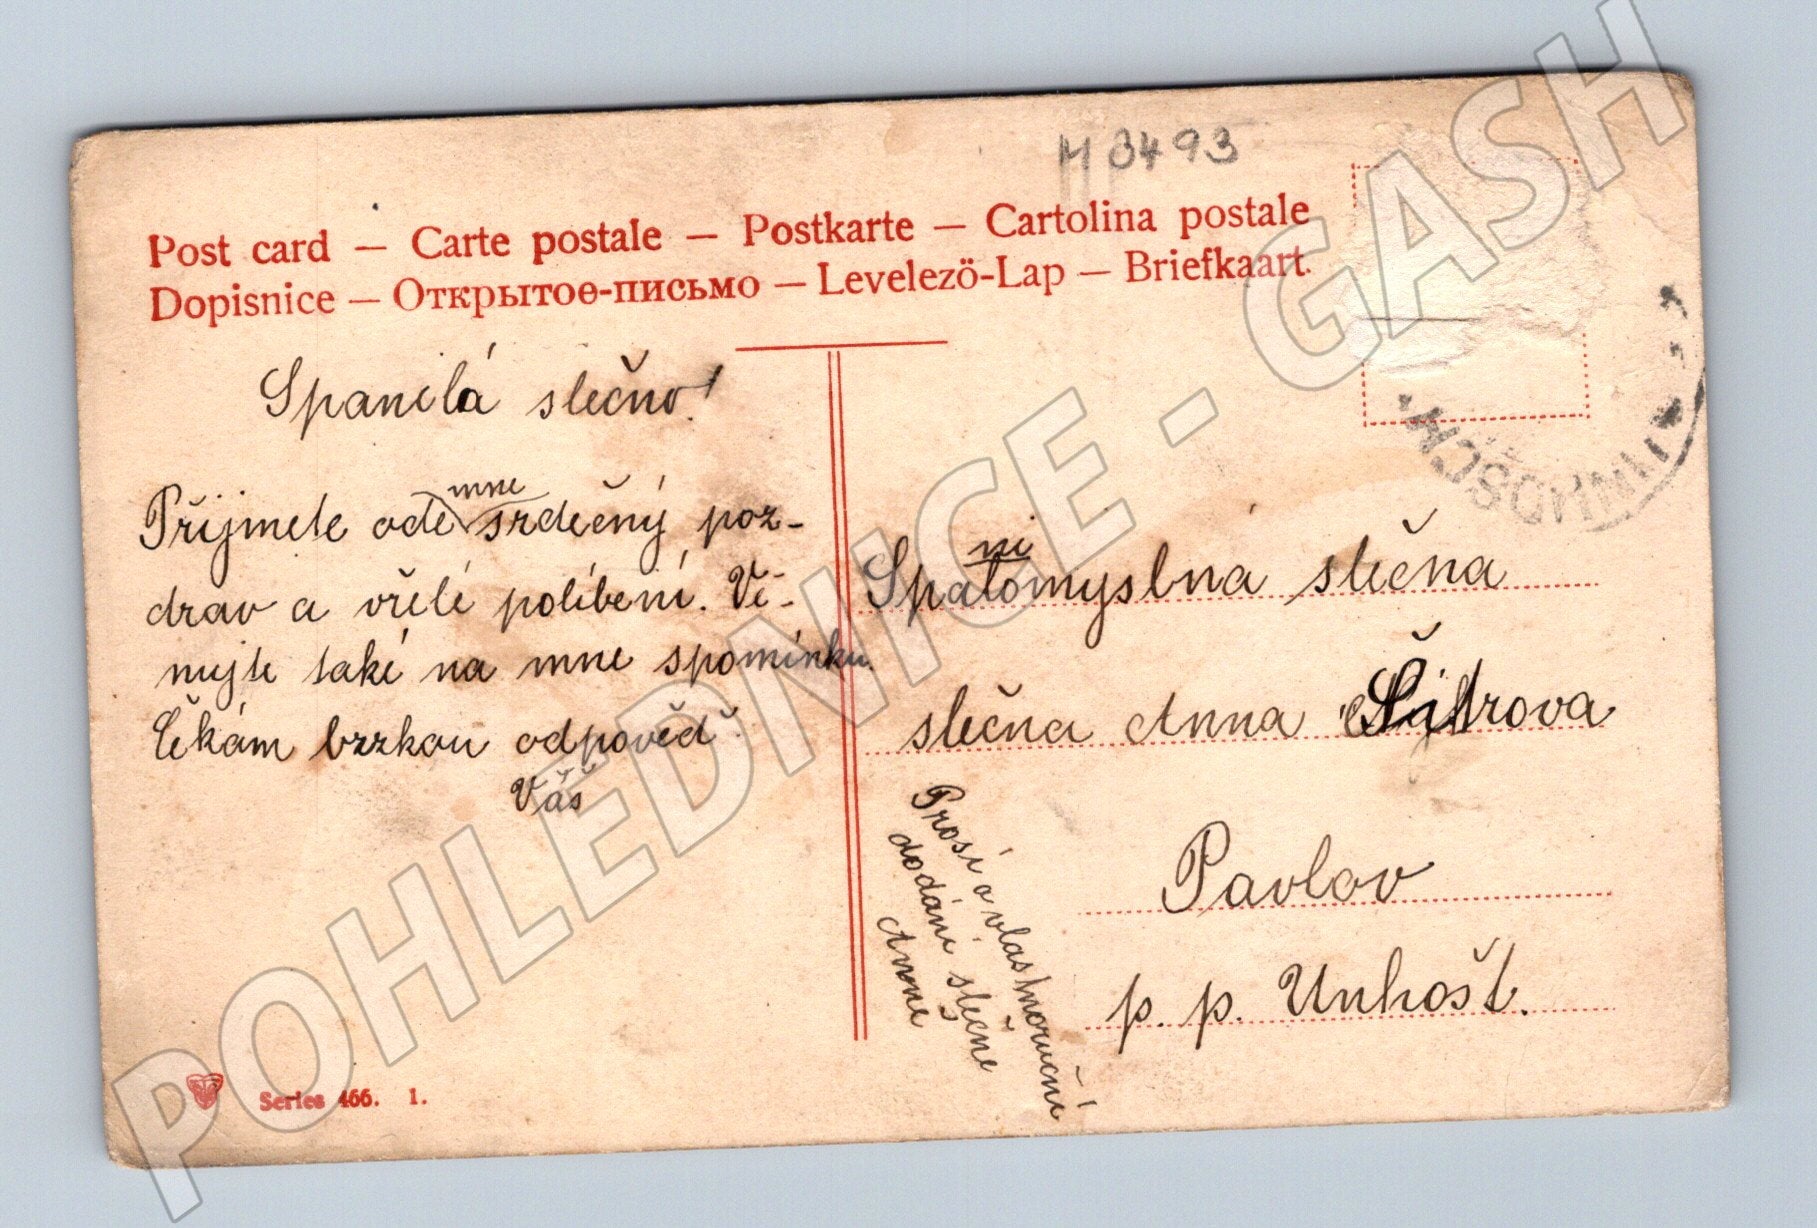 M 3493
Post card — Carte postale — Postkarte — Cartolina postale
Dopisnice — Открытое-письмо — Levelező-Lap — Briefkaart.
Spanilá slečno!
mne
Přijmete ode srdečný poz-
drav a vřelé políbení. Vě-
nujte také na mne spomínku.
Čekám brzkou odpověď.
Váš
ni
Spatomyslná slečna
slečna Anna
Pavlov
p. p. Unhošt.
Prosí o vlastnoruční
dodání slečne
Anne
Series 466. 1.
POHLEDNICE - GASH